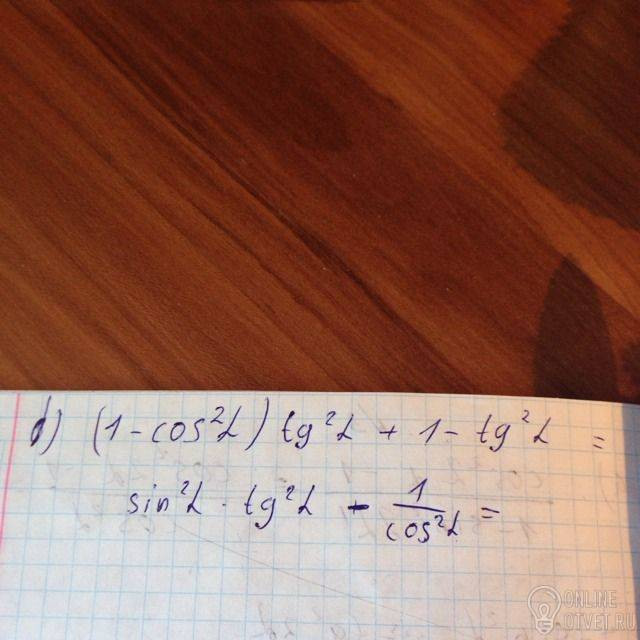 d) (1 - cos²α) tg²α + 1 - tg²α =
sin²α · tg²α - 1/cos²α =
ONLINE
OTVET.RU